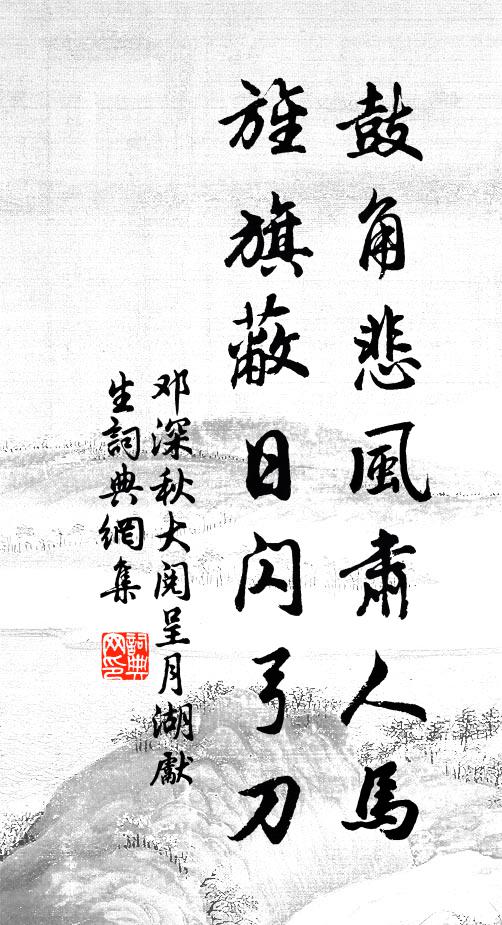 鼓角悲風肅人馬
旌旗蔽日閃弓刀
邓深秋大閱呈月湖獻
生詞典網集
詞典
网印